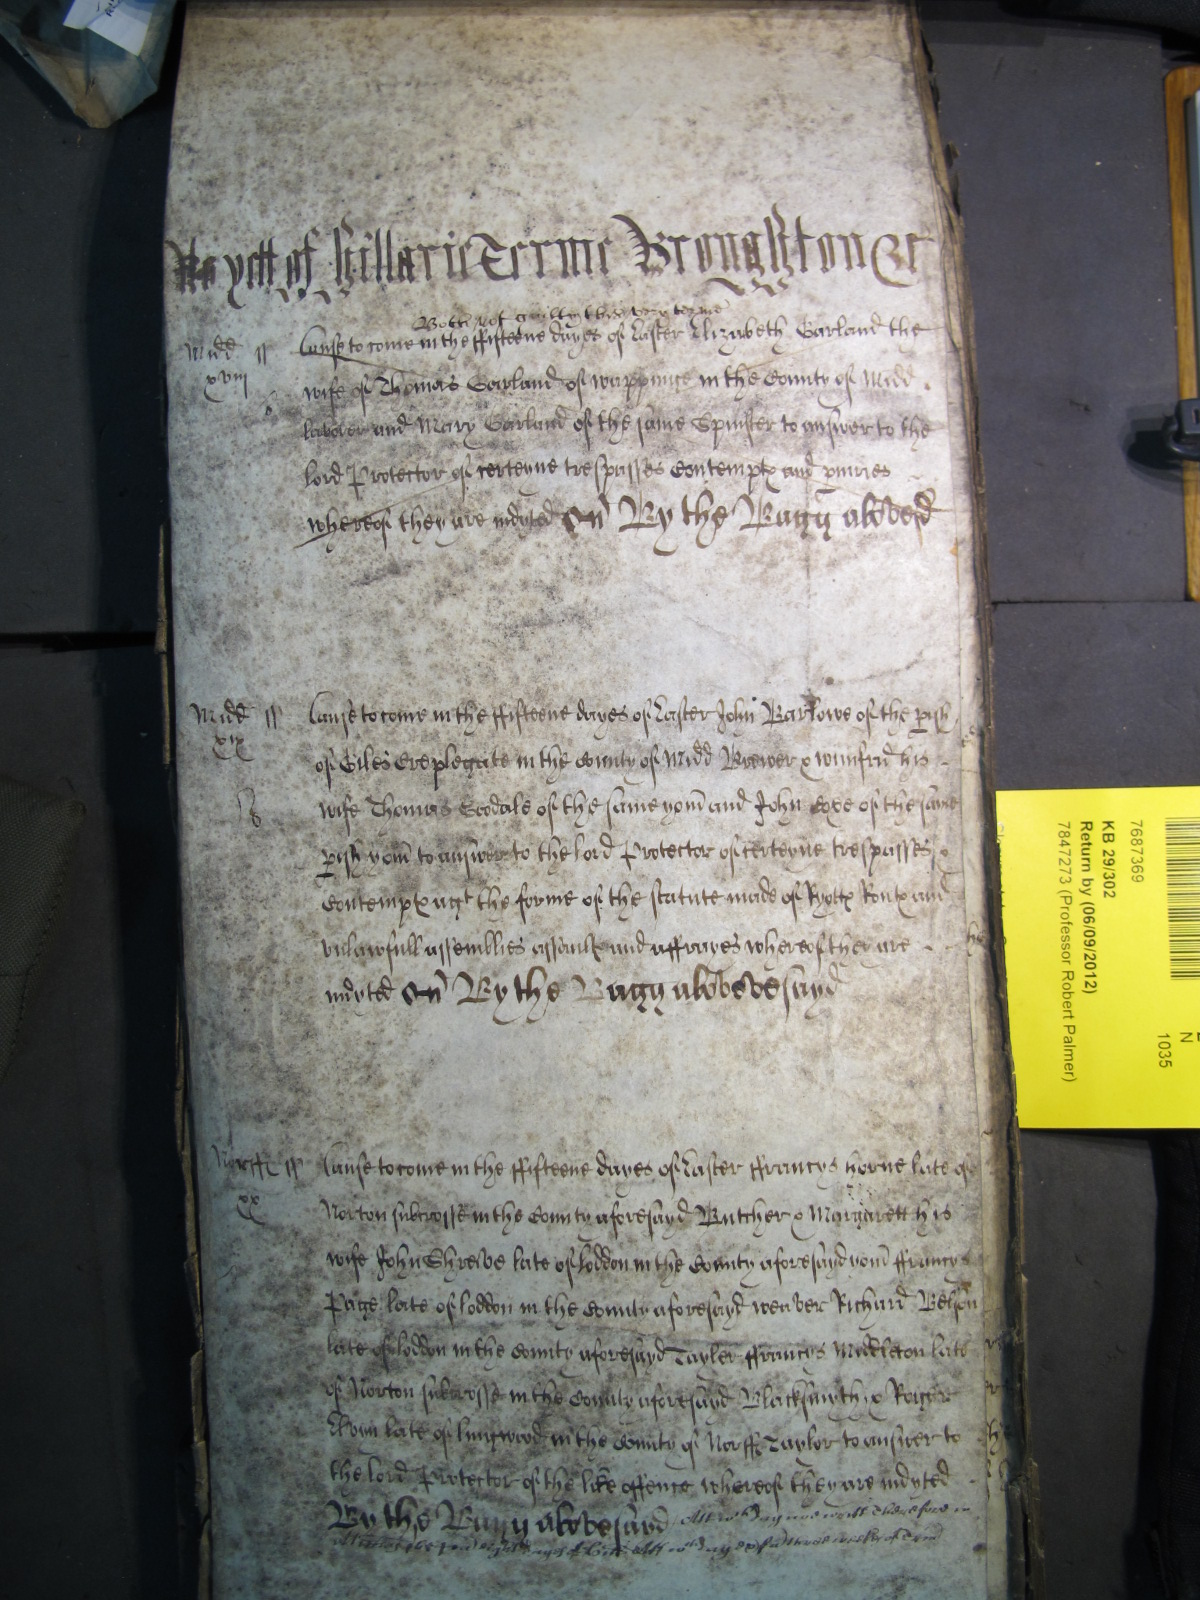 As yett of Hillarie Terme Broughton &c
Both not guilty this very terme
Midd ss Cause to come in the ffifteene dayes of Easter Elizabeth Garland the
xviij wife of Thomas Garland of wappinge in the County of Midd
laborer and Mary Garland of the same Spinster to answer to the
lord Protector of certeyne trespasses Contempts and iniuries
whereof they are indyted By the Bagg abovesd
Midd ss Cause to come in the ffifteene dayes of Easter John Barlowe of the pish
xix of Giles Creplegate in the County of Midd Brewer & winifrid his
wife Thomas Goodale of the same yom and John Coxe of the same
pish yom to answer to the lord Protector of certeyne trespasses &
Contempts agt the forme of the statute made of Ryotts Routs and
vnlawfull assemblies assaults and affrayes whereof they are
indyted By the Bagg abovesayd
Norff ss Cause to come in the ffifteene dayes of Easter ffrancys horne late of
xx Norton subcrosse in the County aforesayd Butcher & Margarett his
wife John Shreve late of loddon in the County aforesayd yom ffrancys
Page late of loddon in the County aforesayd weaver Richard
late of loddon in the County aforesayd Tayler ffrancys Middleton late
of Norton subcrosse in the County aforesayd Blacksmyth & Roger
late of lingwood in the County of Norff Taylor to answer to
the lord Protector of the like offence whereof they are indyted
By the Bagg abovesayd
7687369
KB 29/302
Return by (06/09/2012)
7847273 (Professor Robert Palmer)
1035
N